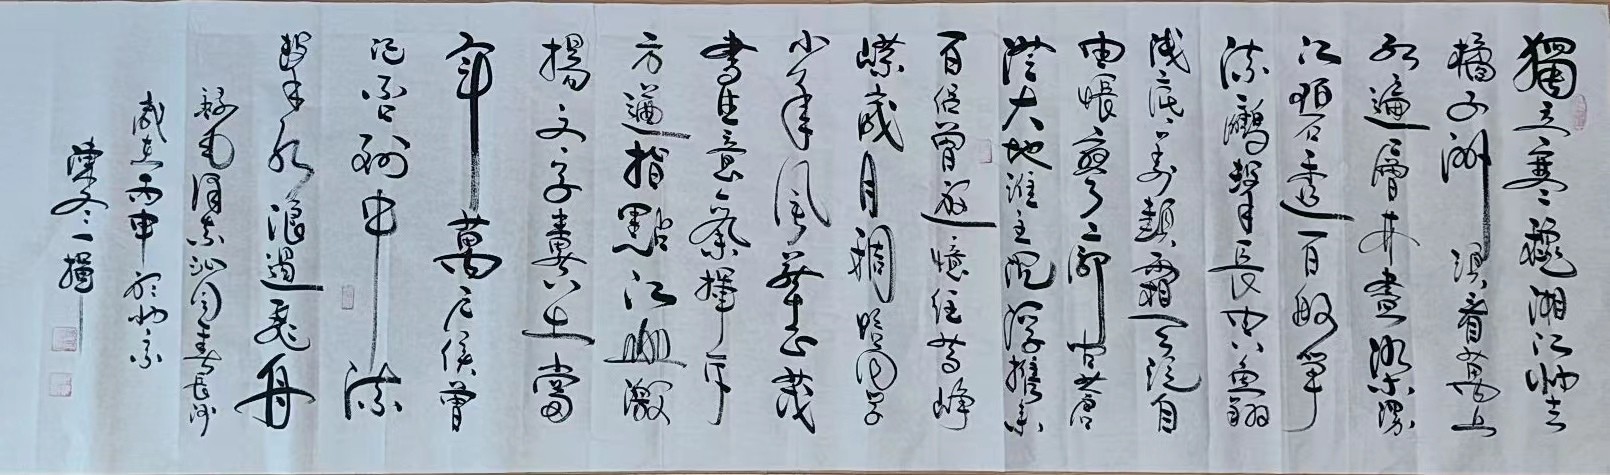 獨立寒秋湘江北去
橘子洲頭看萬山
紅遍層林盡染漫
江碧透百舸爭
流鷹擊長空魚翔
淺底萬類霜天競自
由悵寥廓問蒼
茫大地誰主沉浮攜來
百侶曾遊憶往昔崢
嶸歲月稠恰同學
少年風華正茂
書生意氣揮斥
方遒指點江山激
揚文字糞土當
年萬户侯曾
記否到中流
擊水浪遏飛舟
錄毛澤東沁園春長沙
歲在丙申於北京